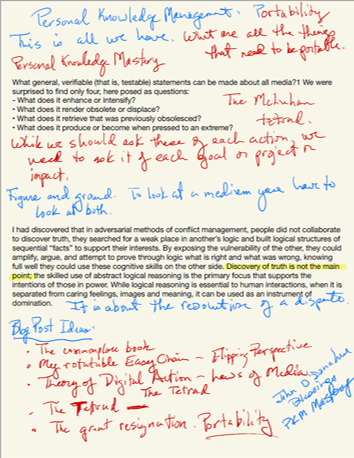 Personal Knowledge Management. Portability
This is all we have. What are all the things
that need to be portable.
Personal Knowledge Mastery
What general, verifiable (that is, testable) statements can be made about all media?1 We were
surprised to find only four, here posed as questions:
- What does it enhance or intensify?
- What does it render obsolete or displace?
- What does it retrieve that was previously obsolesced?
- What does it produce or become when pressed to an extreme?
The McLuhan
tetrad.
While we should ask these of each action, we
need to ask it of each goal or project or
impact.
Figure and ground. To look at a medium you have to
look at both.
I had discovered that in adversarial methods of conflict management, people did not collaborate
to discover truth, they searched for a weak place in another's logic and built logical structures of
sequential "facts" to support their interests. By exposing the vulnerability of the other, they could
amplify, argue, and attempt to prove through logic what is right and what was wrong, knowing
full well they could use these cognitive skills on the other side. Discovery of truth is not the main
point; the skilled use of abstract logical reasoning is the primary focus that supports the
intentions of those in power. While logical reasoning is essential to human interactions, when it is
separated from caring feelings, images and meaning, it can be used as an instrument of
domination.
It is about the resolution of a dispute.
Blog Post Ideas:
• The commonplace book
• My rotutable Easy Chair - Flipping Perspective
• Theory of Digital Action - Laws of Media
The Tetrad
• The Tetrad
• The great resignation. Portability
John O'Donohue
Blessings
PKM Mastery